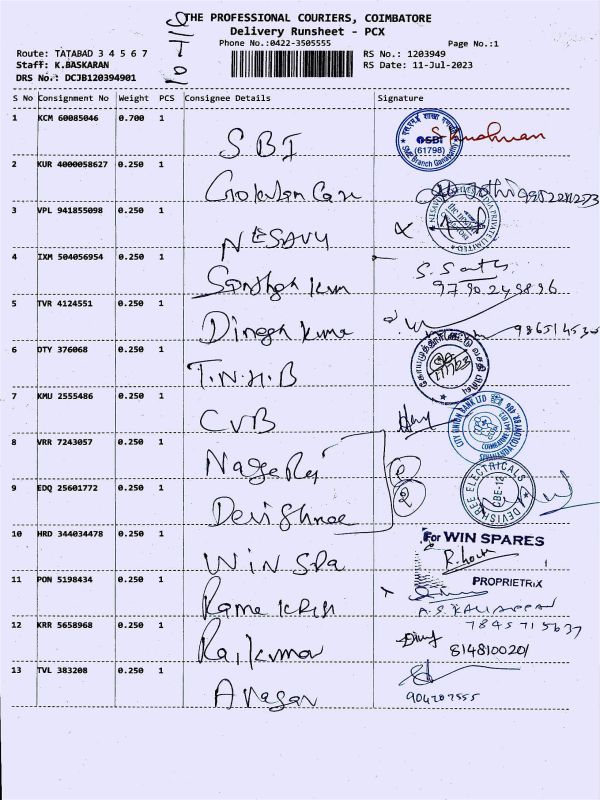 THE PROFESSIONAL COURIERS, COIMBATORE
Delivery Runsheet - PCX
Phone No.:0422-3505555
Page No.:1
Route: TATABAD 3 4 5 6 7
RS No.: 1203949
Staff: K.BASKARAN
RS Date: 11-Jul-2023
DRS No.: DCJB120394901
S No Consignment No Weight PCS Consignee Details Signature
1 KCM 60085046 0.700 1
SBI
SBI
(61798)
2 KUR 4000058627 0.250 1
3 VPL 941855098 0.250 1
NESAVU
4 IXM 504056954 0.250 1
9790249896
5 TVR 4124551 0.250 1
Dinesh Kumar
6 DTY 376068 0.250 1
T.N.H.B
7 KMU 2555486 0.250 1
CVB
CITY UNION BANK LTD
8 VRR 7243057 0.250 1
Nage Raj
9 EDQ 25601772 0.250 1
Devi Shree
2
DEVISHREE ELECTRICALS
CBE-12
10 HRD 344034478 0.250 1
For WIN SPARES
WIN SPA
PROPRIETRIX
11 PON 5198434 0.250 1
Rame Krish
A.S. KALIAPPAN
7845715637
12 KRR 5658968 0.250 1
Raj Kumar
814810020/
13 TVL 383208 0.250 1
904207555